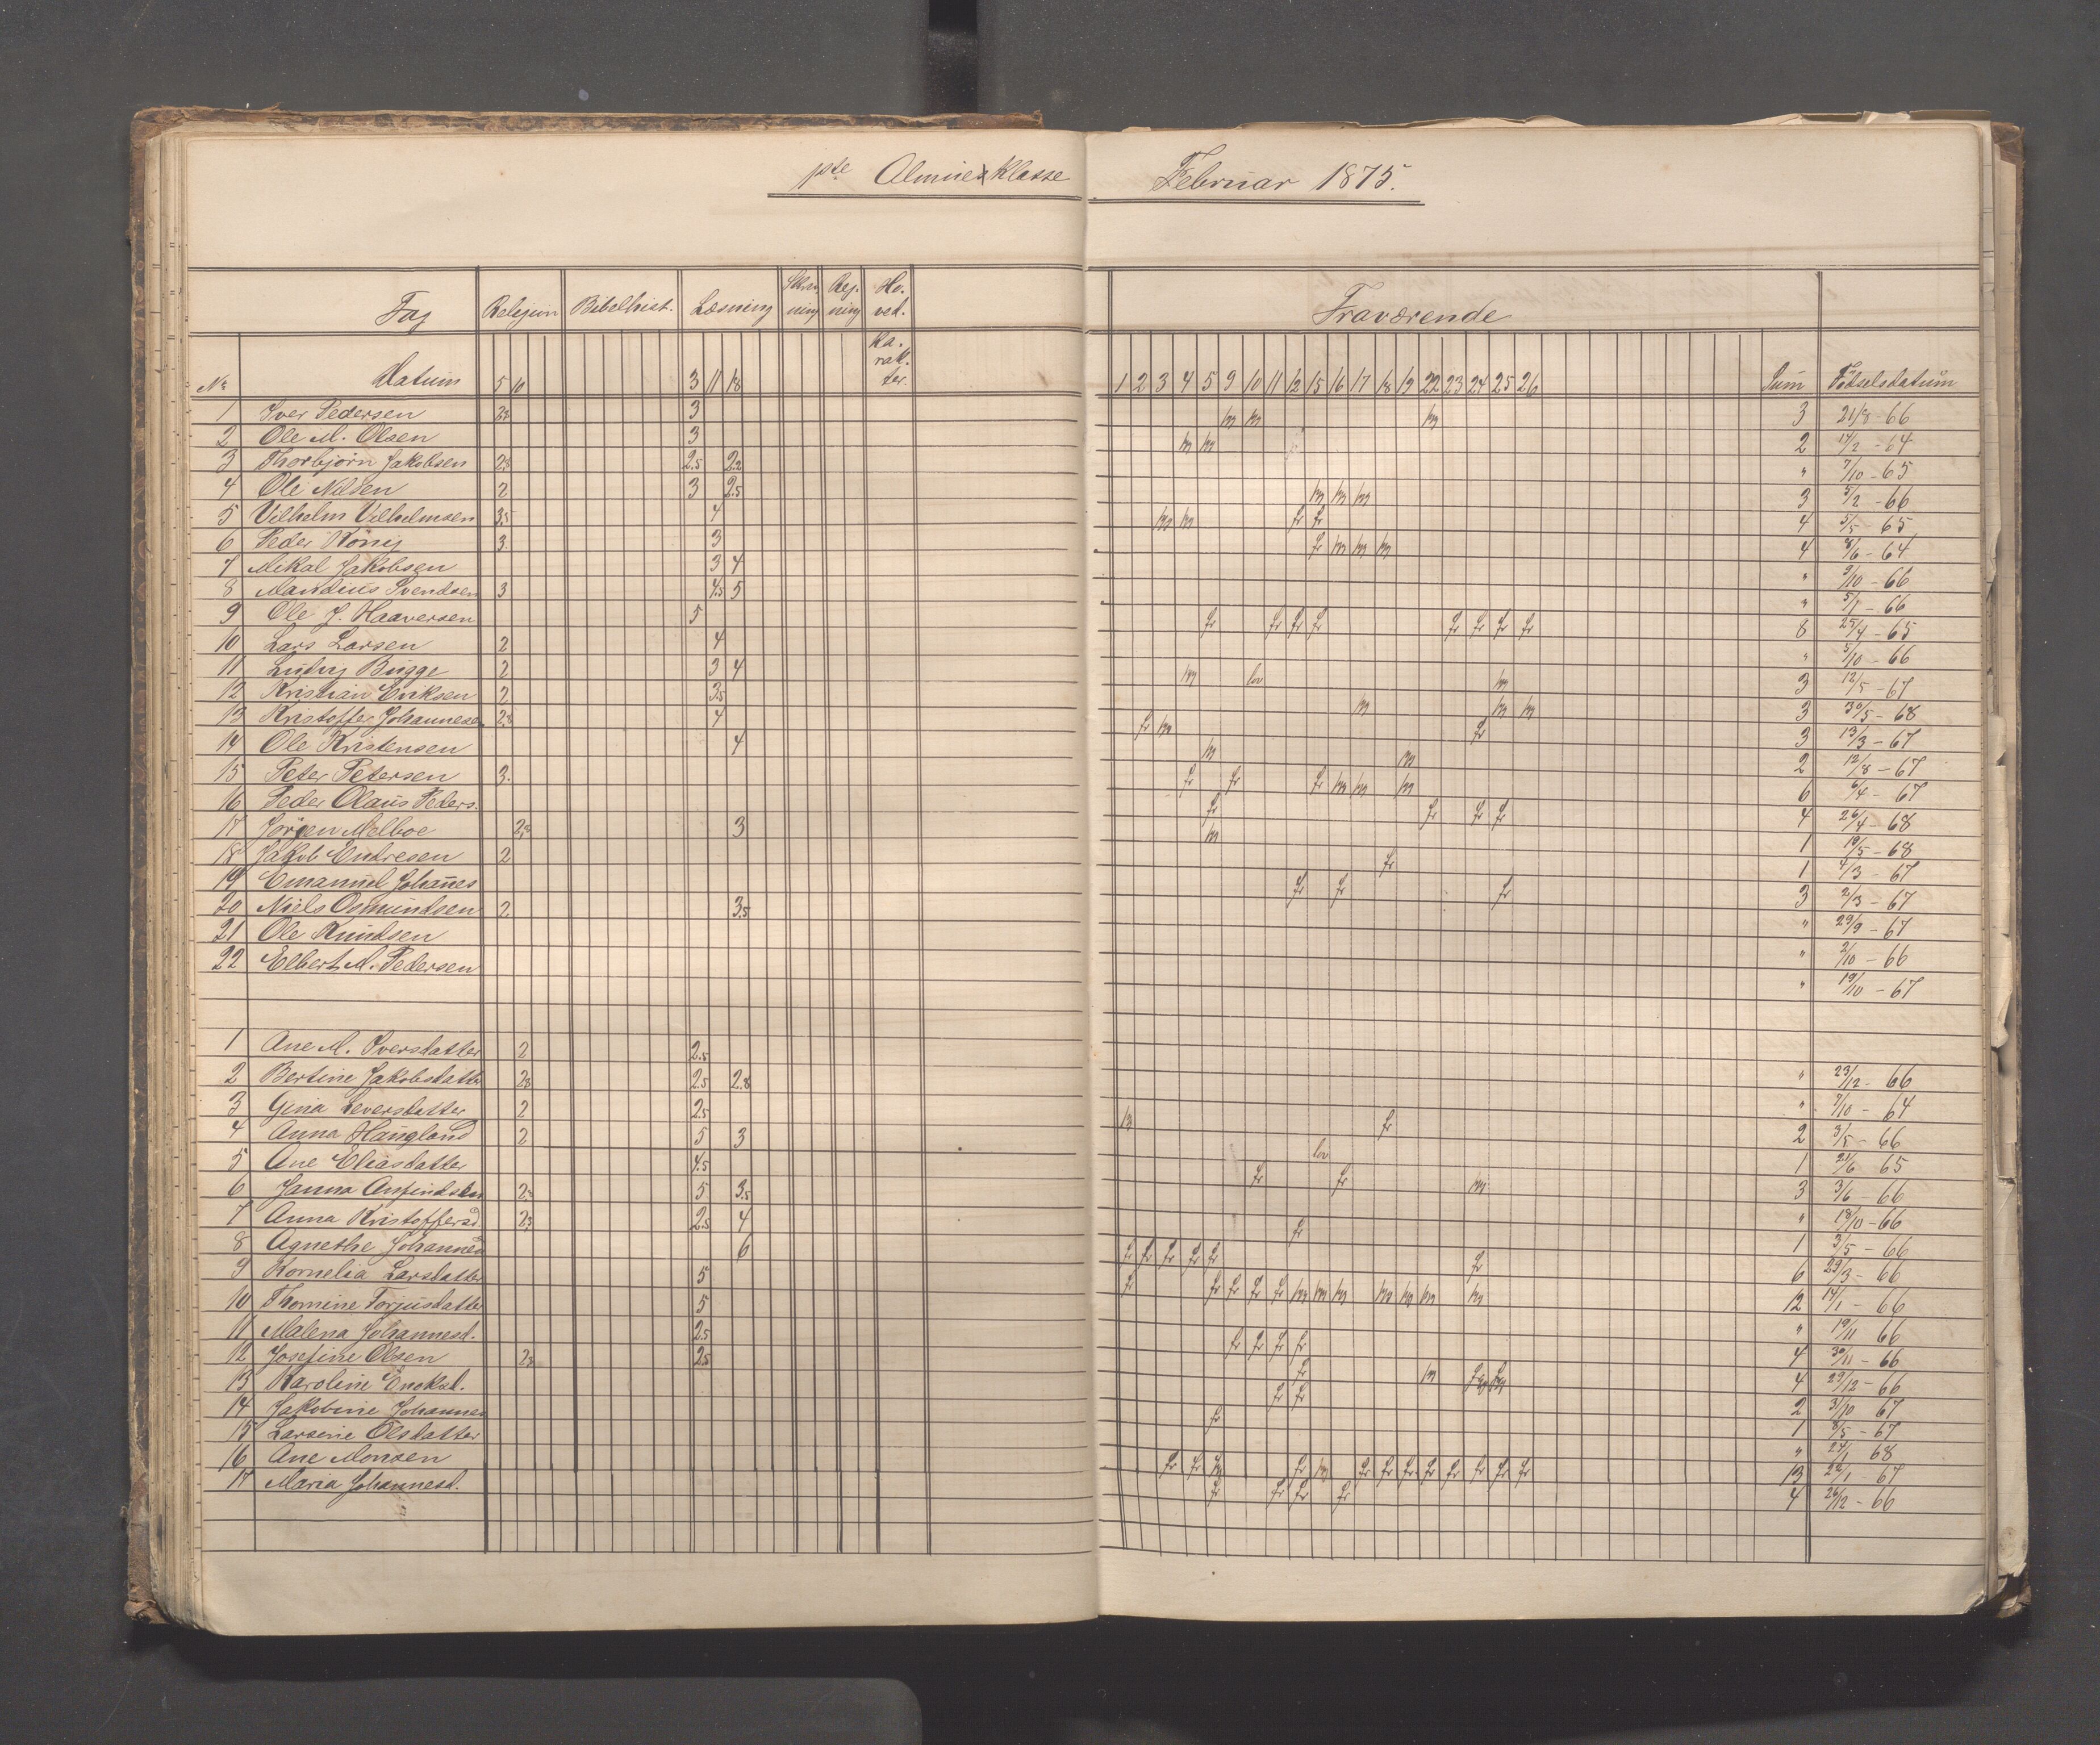 1ste Almueklasse Februar 1875.
Fag Religion Bibelhist. Læsning Skriv-ning Reg-ning Ho-ved-ka-rak-ter. Fraværende
No Datum 5 10 3 11 18 1 2 3 4 5 9 10 11 12 15 16 17 18 19 22 23 24 25 26 Sum Fødselsdatum
1 Iver Pedersen 3 m m m 3 21/8 - 66
2 Ole M. Olsen 3 m m 2 17/2 - 64
3 Thorbjørn Jakobsen 2.5 2.2 " 7/10 - 65
4 Ole Nilsen 2 3 2.5 m m m 3 5/2 - 66
5 Vilhelm Vilhelmsen 3.5 4 m m fr fr 4 5/5 - 65
6 Peder König 3. 3 fr m m m 4 8/6 - 64
7 Mikal Jakobsen 3 4 " 9/10 - 66
8 Mandius Svendsen 3 4.5 5 " 66
9 Ole J. Haaversen 5 fr fr fr fr fr fr fr fr 8 25/4 - 65
10 Lars Larsen 2 4 " 5/10 - 66
11 Ludvig Bugge 2 3 4 m lov m 3 12/5 - 67
12 Kristian Eriksen 2 3.5 m m m 3 30/5 - 68
13 Kristoffer Johannesen 2.8 4 fr m fr 3 13/3 - 67
14 Ole Kristensen 4 m m 2 12/8 - 67
15 Peter Petersen 3. fr fr fr m m m 6 6/4 - 67
16 Peder Olaus Peders. fr fr fr fr 4 26/4 - 68
17 Jørgen Melboe 3 m 1 19/5 - 68
18 Jakob Endresen 2 fr 1 4/3 - 67
19 Emanuel Johannes fr fr fr 3 2/3 - 67
20 Niels Osmundsen 2 3.5 " 29/9 - 67
21 Ole Knudsen " 2/10 - 66
22 Elbert M. Pedersen " 19/10 - 67
1 Ane M. Iversdatter 2 2.5 " 23/12 - 66
2 Bertine Jakobsdatter 2.8 2.5 2.8 " 7/10 - 64
3 Gina Seversdatter 2 2.5 fr 2 3/5 - 66
4 Anna Haugland 2 5 3 lov 1 21/6 65
5 Ane Eliasdatter 4.5 fr fr m 3 3/6 - 66
6 Janna Anfindsen 5 3.5 " 18/10 - 66
7 Anna Kristoffersd. 2.5 4 fr 1 3/5 - 66
8 Agnethe Johannesd 6 fr fr fr fr fr fr 6 29/3 - 66
9 Kornelia Larsdatter 5 fr fr fr fr fr m m m m m m m 12 14/1 - 66
10 Thomine Torjusdatter 5 " 19/11 66
11 Malena Johannesd. 2.5 fr fr fr fr 4 30/11 - 66
12 Josefine Olsen 2.5 fr m 4 29/12 - 66
13 Karoline Enoksd. fr fr 2 3/10 67
14 Jakobine Johannes fr 1 8/5 - 67
15 Larsine Olsdatter " 24/1 68
16 Ane Monsen fr fr fr fr fr fr fr fr fr fr fr 13 22/1 - 67
17 Maria Johannesd. fr fr fr fr 4 26/12 - 66